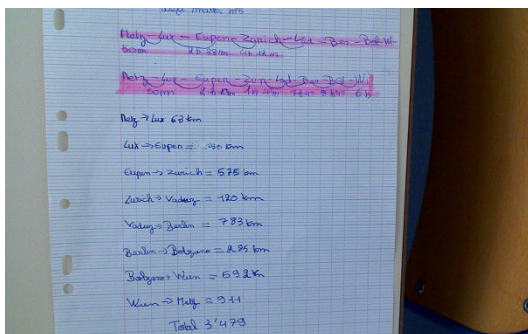 Metz-Lux-Eupen-Zurich-Lgd-Ber-Bol-Wi
50m 2h 38m 4h 12m
Metz-Lux-Eupen-Zur-Lgd-Ber-Bol-Wi
50m 6h
Metz → Lux 63 km
Lux → Eupen = 30 km
Eupen → Zurich = 575 km
Zurich → Vaduz = 120 km
Vaduz → Berlin = 783 km
Berlin → Bolzano = 285 km
Bolzano → Wien = 592 km
Wien → Metz = 911
Total 3'479